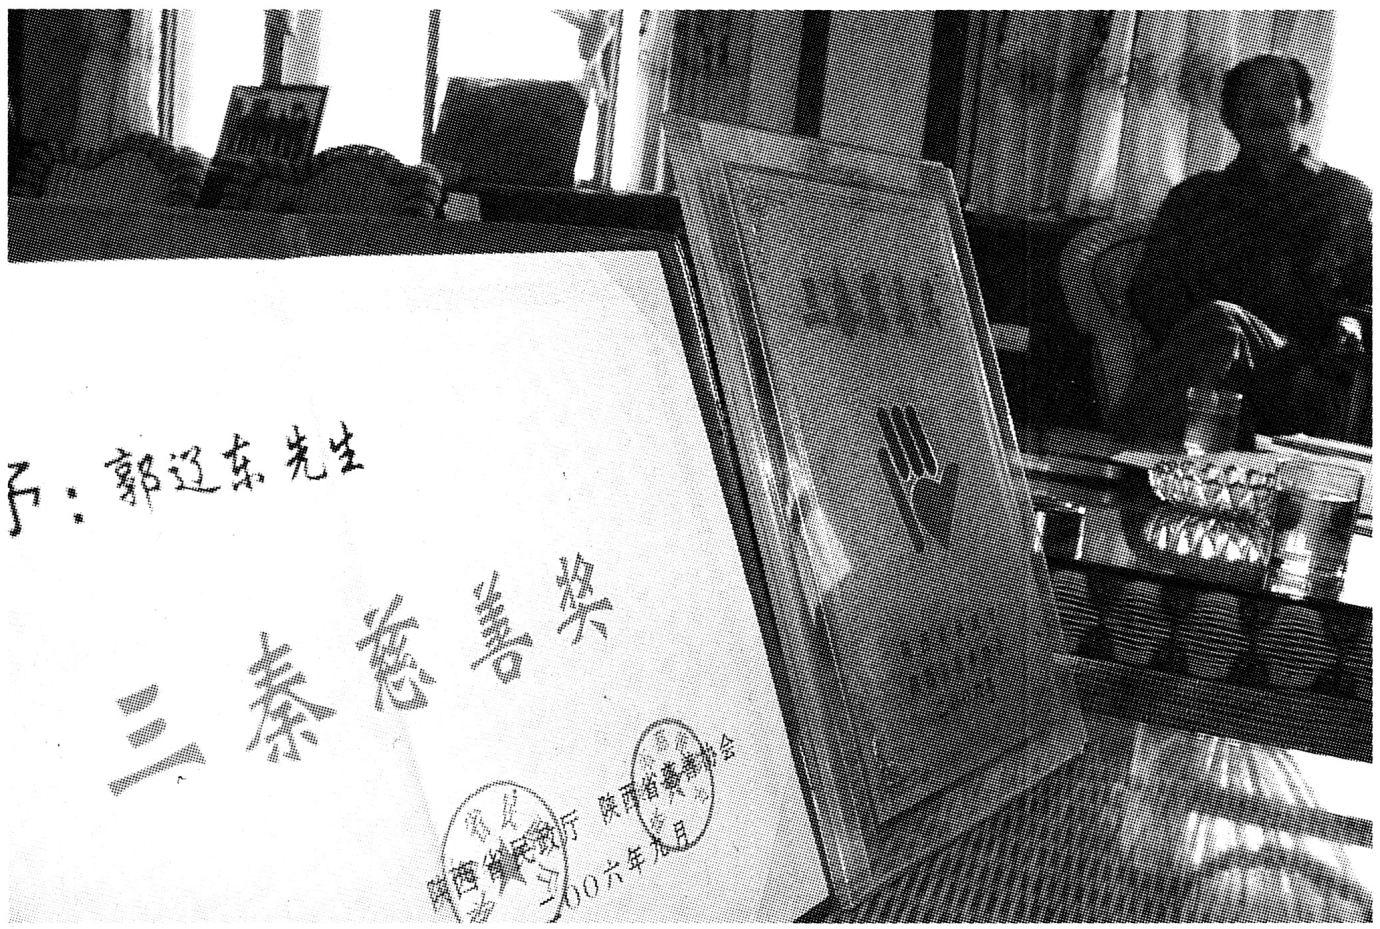 予：郭辽东先生
三秦慈善奖
陕西省民政厅 陕西省慈善协会
二00六年九月